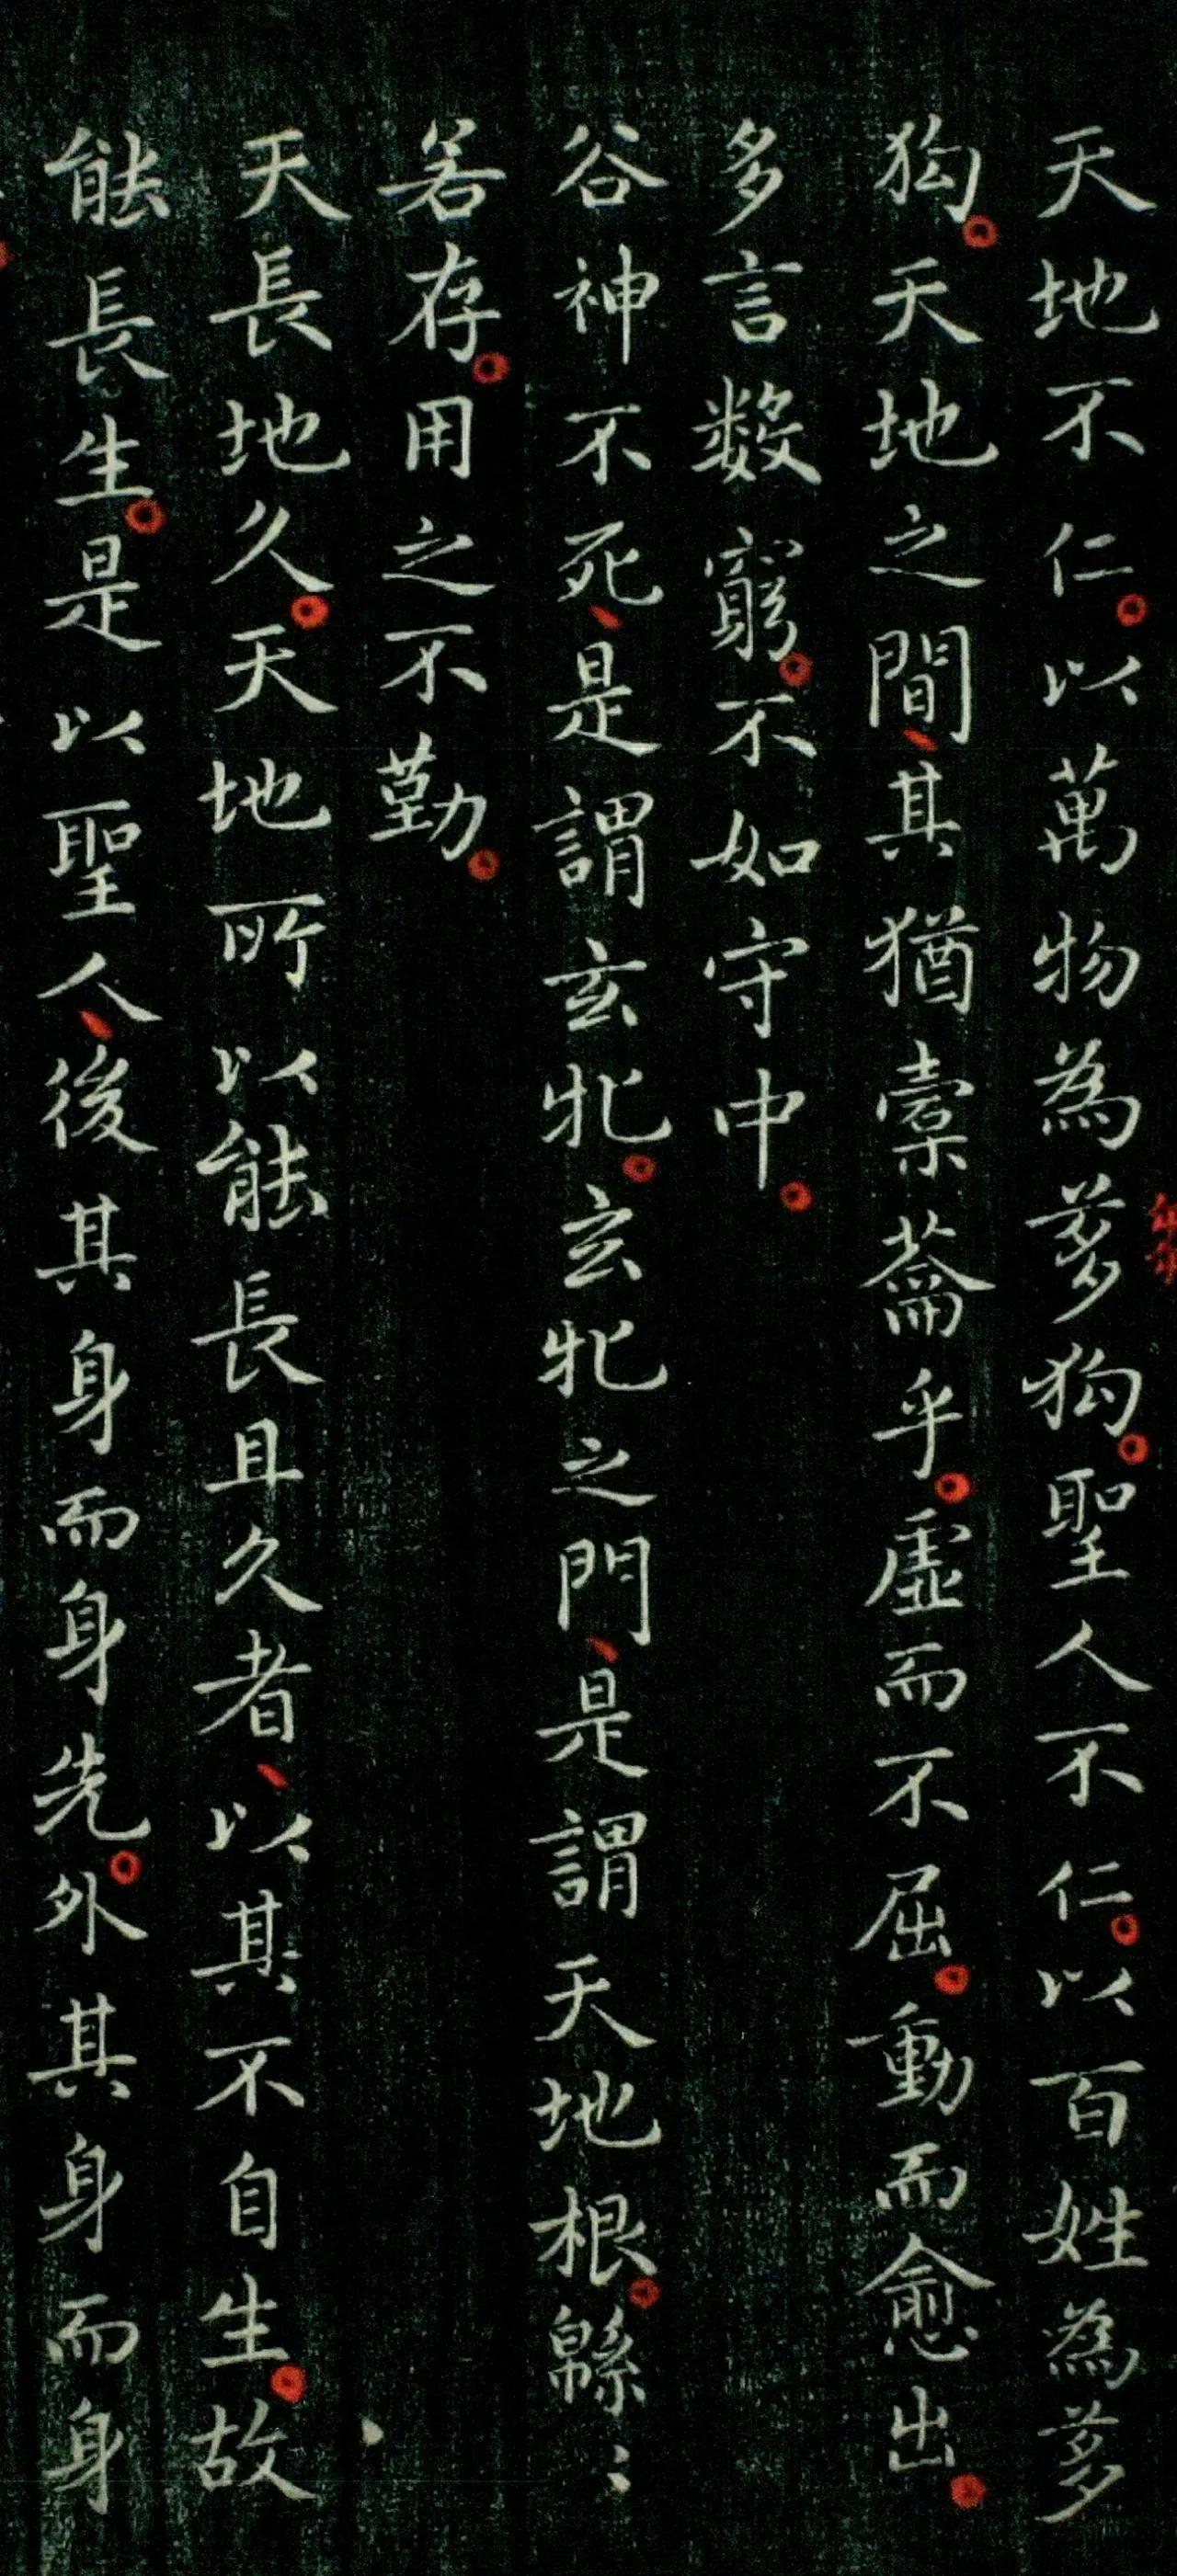 天地不仁。以萬物為芻狗。聖人不仁。以百姓為芻
狗。天地之間、其猶橐籥乎。虛而不屈。動而愈出。
多言數窮。不如守中。
谷神不死、是謂玄牝。玄牝之門、是謂天地根。緜〻
若存。用之不勤。
天長地久。天地所以能長且久者、以其不自生。故
能長生。是以聖人、後其身而身先。外其身而身